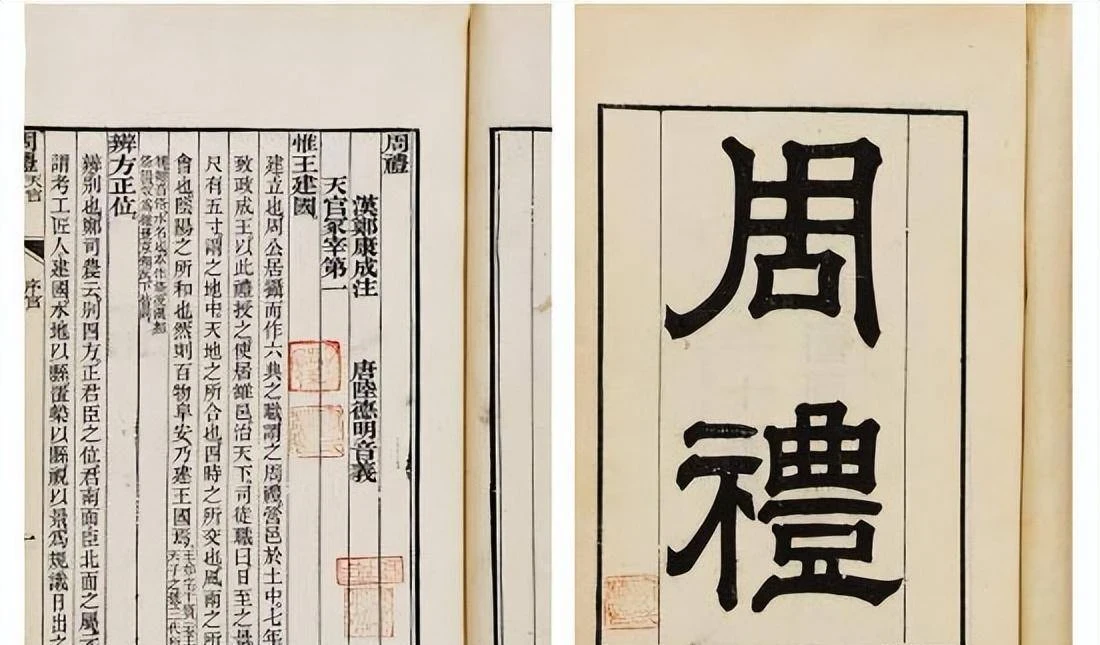 周禮
漢鄭康成注 唐陸德明音義
天官冢宰第一
惟王建國
建立也周公居攝而作六典之職謂之周禮營邑於土中七年
致政成王以此禮授之使居雒邑治天下司徒職曰日至之景
尺有五寸謂之地中天地之所合也四時之所交也風雨之所
會也陰陽之所和也然則百物阜安乃建王國焉
辨方正位
辨別也鄭司農云別四方正君臣之位君南面臣北面之屬
謂考工匠人建國水地以縣置槷以縣視以景為規識日出之
周禮 天官 序官
一
周禮